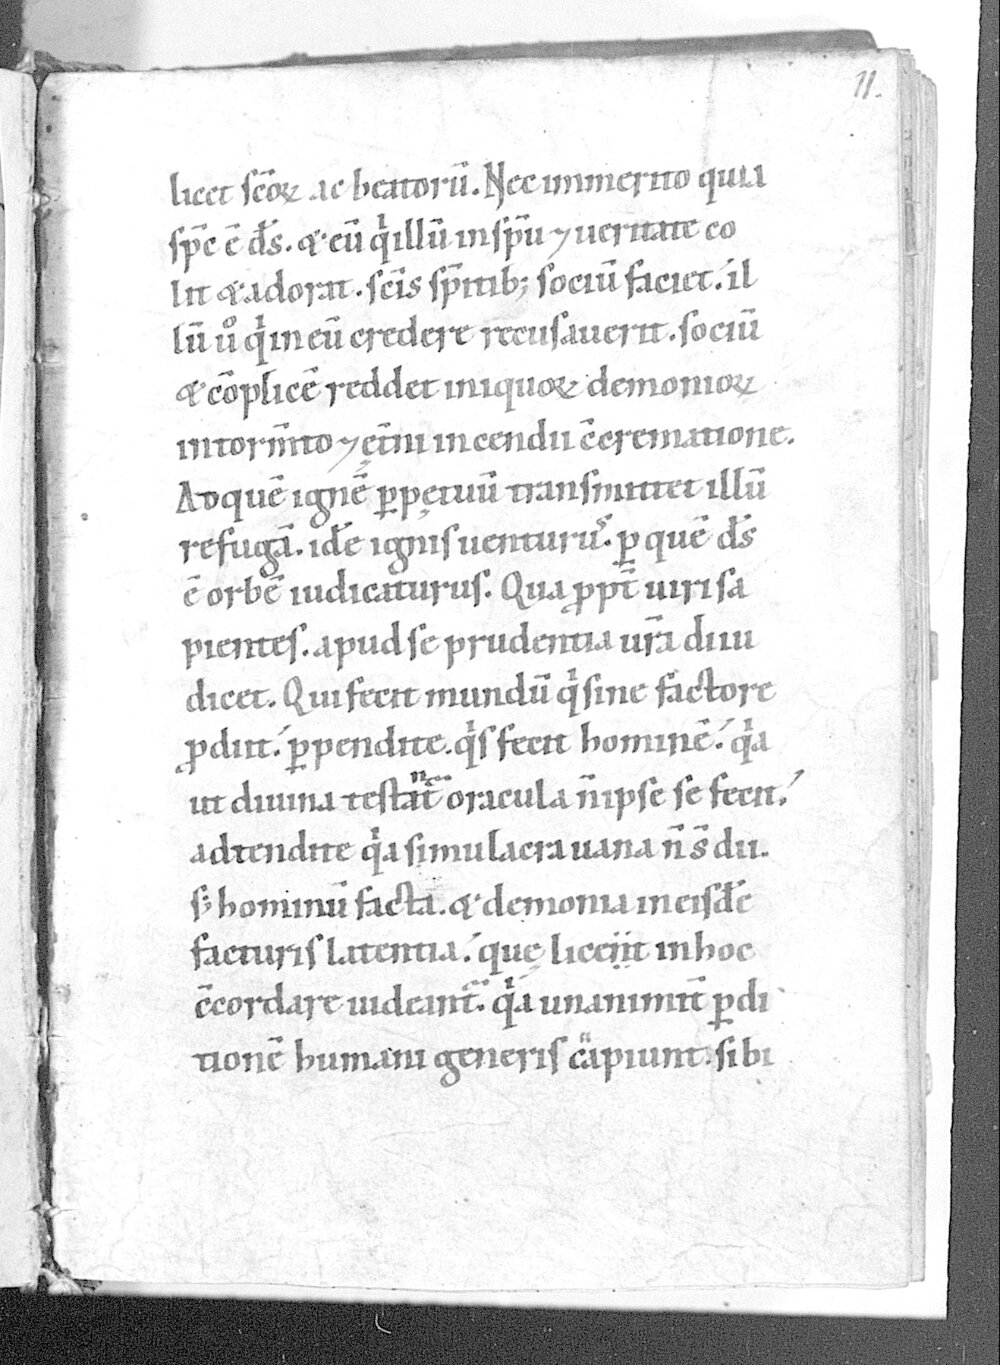 11.
licet sc̄oꝝ ac beatorū. Nec immerito quia
sp̄c ē d̄s. & eū qͥ illū in sp̄u ⁊ ueritate co
lit & adorat. sc̄is sp̄itib; sociū faciet. il
lū ůo qͥ in eū credere recusauerit. sociū
& cōplicē reddet iniquoꝝ demonioꝝ
in torm̄to ⁊ et̄ni incendii c̄crematione.
Ad quē ignē ꝑpetuū transmittet illū
refugā. idē ignis uenturus. ꝑ quē d̄s
ē orbē iudicaturus. Qua ꝓpt̄ uiri sa
pientes. apud se prudentia ur̄a diiu
dicet. Qui fecit mundū qͥ sine factore
ꝓdiit. ꝑpendite. qͥs fecit hominē. qͥa
ut diuina testant̄ oracula n̄ ipse se fecit.
adtendite qͥa simulacra uana n̄ s̄ dii.
sꝫ hominū facta. & demonia in eisdē
facturis latentia. quę licet in hoc
c̄cordare uideant̄. qͥa unanimit̄ ꝑdi
tionē humani generis cͣpiunt. sibi